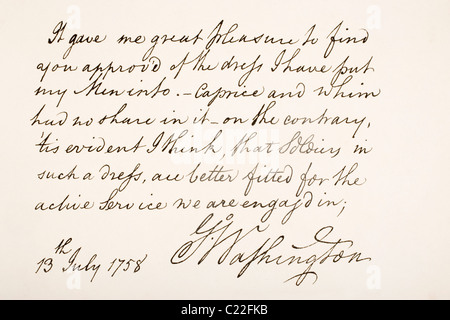 It gave me great pleasure to find
you approv'd of the dress I have put
my Men into. – Caprice and whim
had no share in it – on the contrary,
'tis evident I think, that Soldiers in
such a dress, are better fitted for the
active Service we are engag'd in;
13th July 1758
Go Washington
alamy
Image ID: C22FKB
www.alamy.com